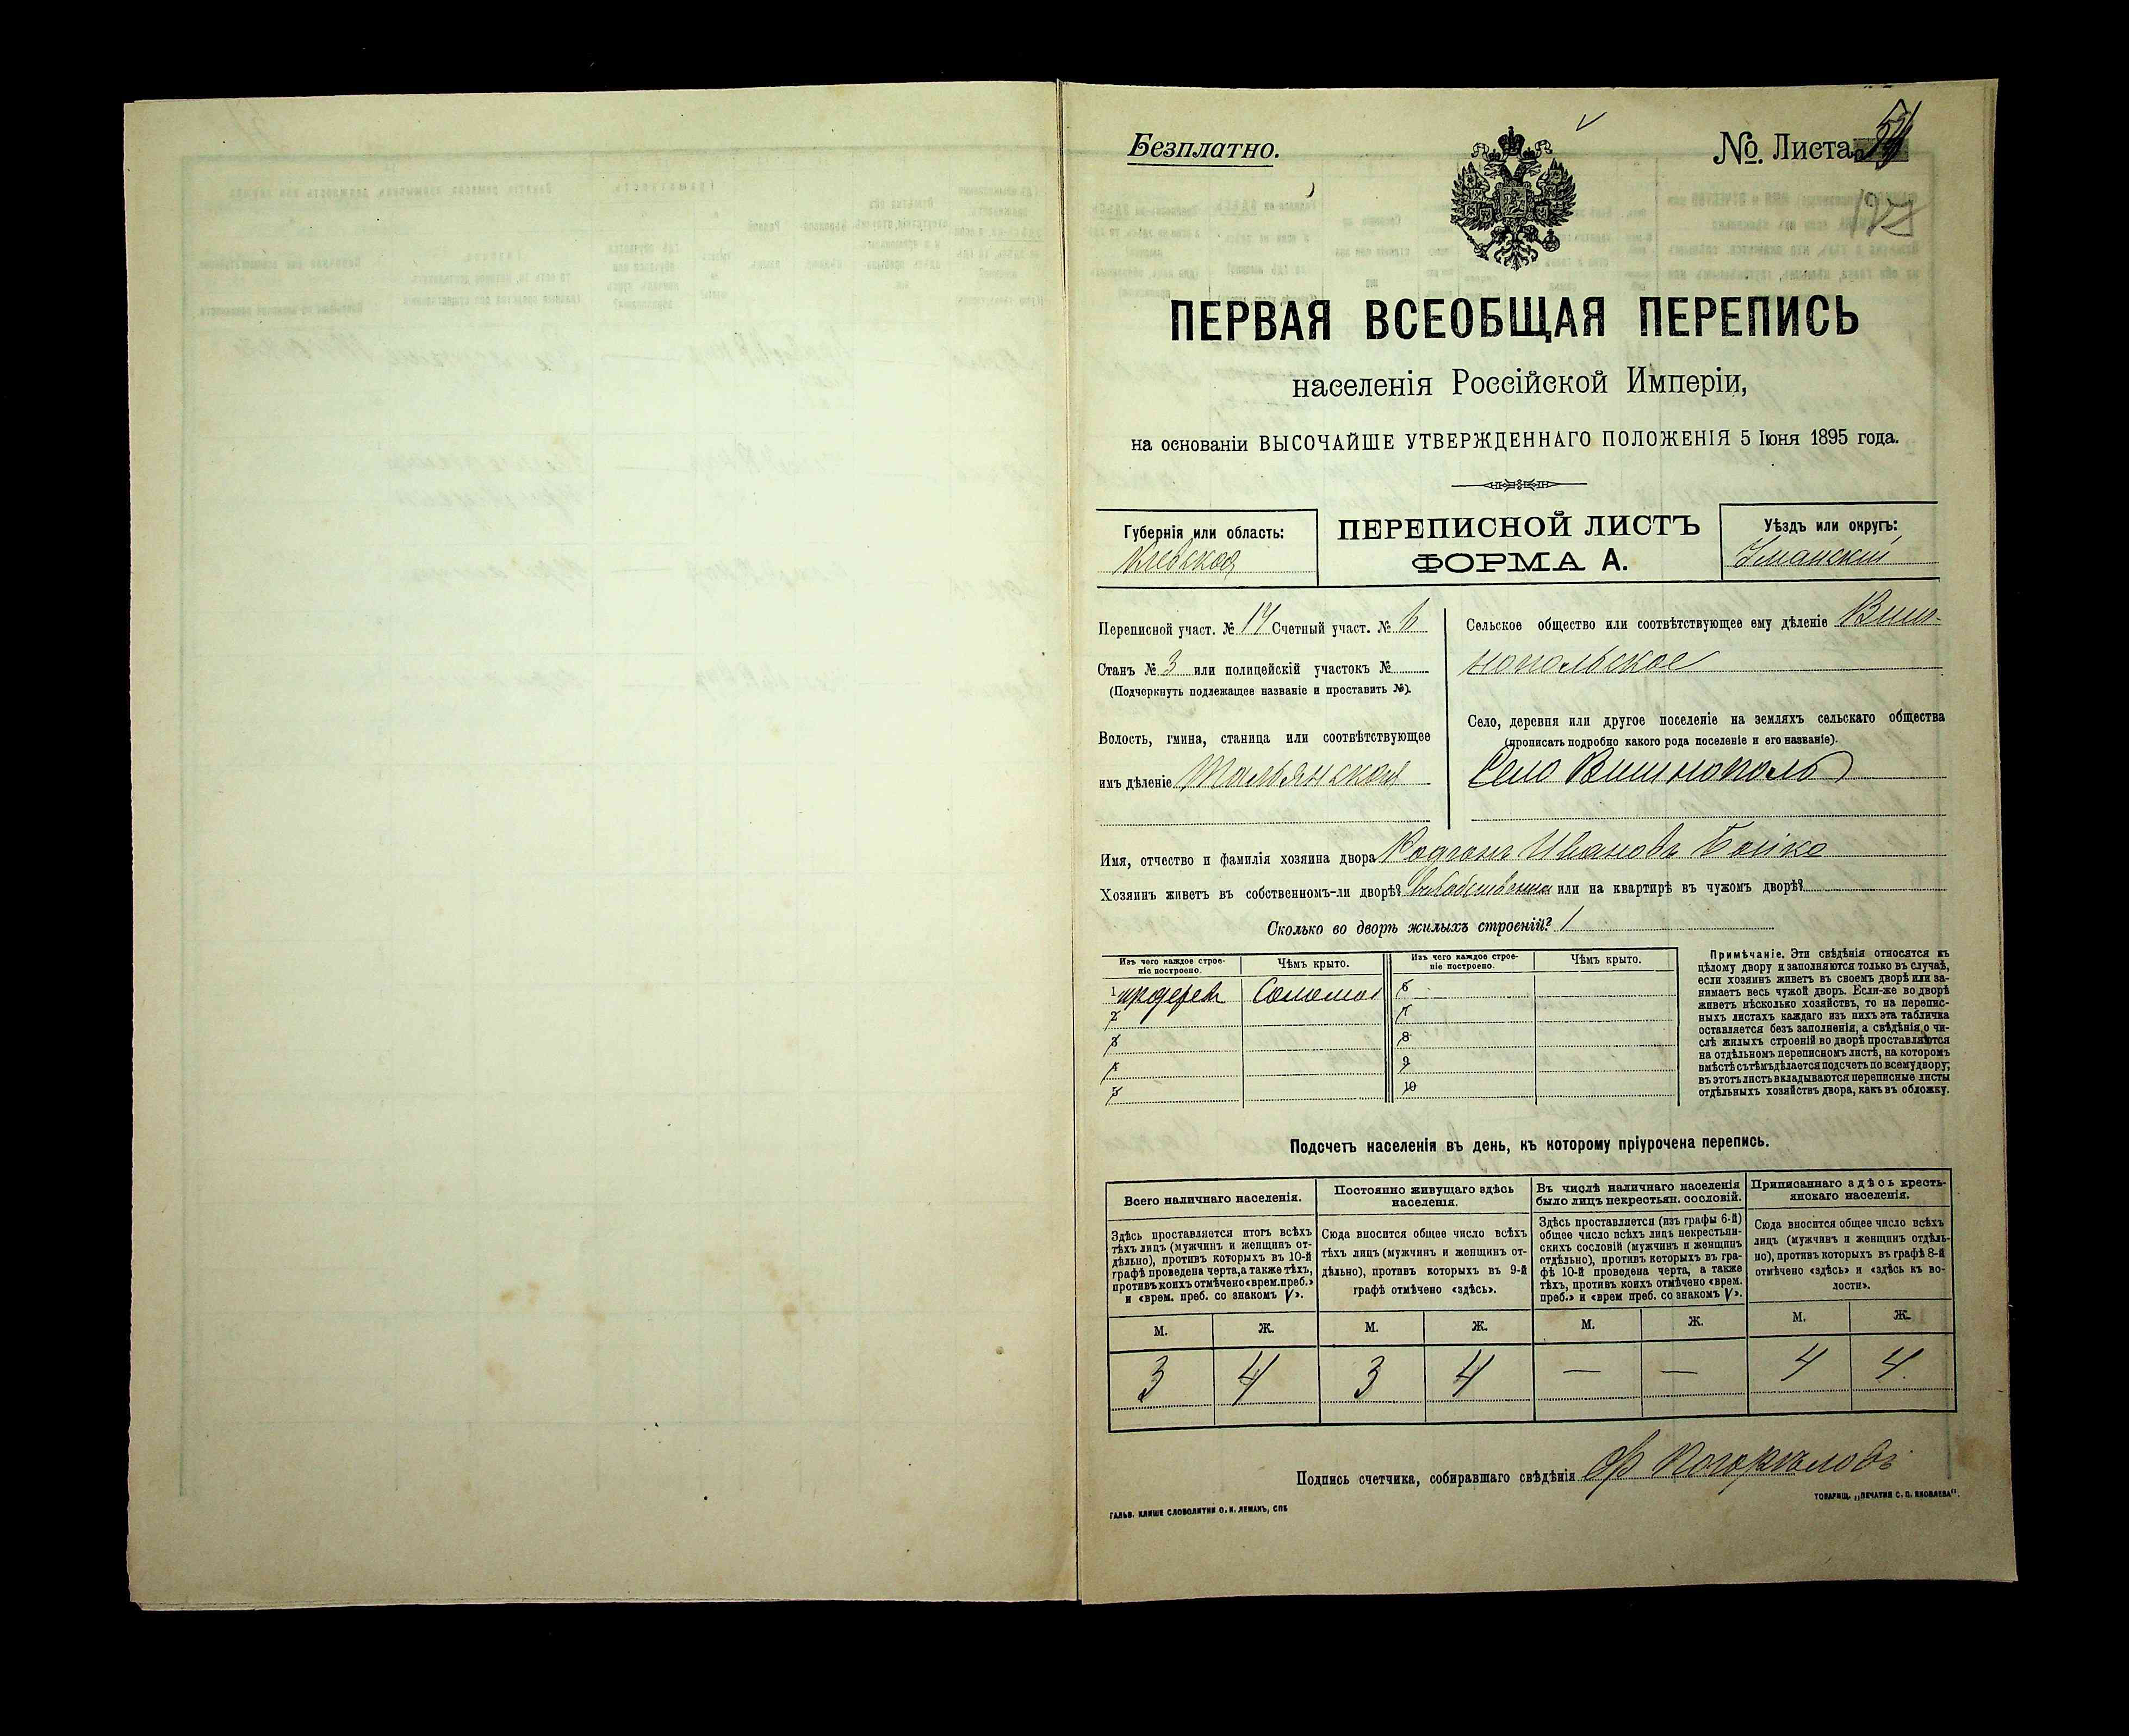 Безплатно.
№ Листа
ПЕРВАЯ ВСЕОБЩАЯ ПЕРЕПИСЬ
населенія Россійской Имперіи,
на основаніи ВЫСОЧАЙШЕ УТВЕРЖДЕННАГО ПОЛОЖЕНІЯ 5 Іюня 1895 года.
Губернія или область:
Кіевская
ПЕРЕПИСНОЙ ЛИСТЪ
ФОРМА А.
Уѣздъ или округъ:
Уманскій
Переписной участ. № 14 Счетный участ. №
Станъ № 3 или полицейскій участокъ №
(Подчеркнуть подлежащее названіе и проставить №).
Волость, гмина, станица или соотвѣтствующее
имъ дѣленіе Тальянская
Сельское общество или соотвѣтствующее ему дѣленіе Виш-
нопольское
Село, деревня или другое поселеніе на земляхъ сельскаго общества
(прописать подробно какого рода поселеніе и его названіе).
Село Вишнополь
Имя, отчество и фамилія хозяина двора Родіонъ Ивановъ Бойко
Хозяинъ живетъ въ собственномъ-ли дворѣ? въ собственномъ или на квартирѣ въ чужомъ дворѣ?
Сколько во дворѣ жилыхъ строеній? 1
Изъ чего каждое строе-
ніе построено.
Чѣмъ крыто.
Изъ чего каждое строе-
ніе построено.
Чѣмъ крыто.
1 Соломой 6
2 7
3 8
4 9
5 10
Примѣчаніе. Эти свѣдѣнія относятся къ
цѣлому двору и заполняются только въ случаѣ,
если хозяинъ живетъ въ своемъ дворѣ или за-
нимаетъ весь чужой дворъ. Если-же во дворѣ
живетъ нѣсколько хозяйствъ, то на перепис-
ныхъ листахъ каждаго изъ нихъ эта табличка
оставляется безъ заполненія, а свѣдѣнія о чи-
слѣ жилыхъ строеній во дворѣ проставляются
на отдѣльномъ переписномъ листѣ, на которомъ
вмѣстѣ съ тѣмъ дѣлается подсчетъ по всему двору;
въ этотъ листъ вкладываются переписные листы
отдѣльныхъ хозяйствъ двора, какъ въ обложку.
Подсчетъ населенія въ день, къ которому пріурочена перепись.
Всего наличнаго населенія.
Здѣсь проставляется итогъ всѣхъ
тѣхъ лицъ (мужчинъ и женщинъ от-
дѣльно), противъ которыхъ въ 10-й
графѣ проведена черта, а также тѣхъ,
противъ коихъ отмѣчено «врем. преб.»
и «врем. преб. со знакомъ V».
Постоянно живущаго здѣсь
населенія.
Сюда вносится общее число всѣхъ
тѣхъ лицъ (мужчинъ и женщинъ от-
дѣльно), противъ которыхъ въ 9-й
графѣ отмѣчено «здѣсь».
Въ числѣ наличнаго населенія
было лицъ некрестьян. сословій.
Здѣсь проставляется (изъ графы 6-й)
общее число всѣхъ лицъ некрестьян-
скихъ сословій (мужчинъ и женщинъ
отдѣльно), противъ которыхъ въ гра-
фѣ 10-й проведена черта, а также
тѣхъ, противъ коихъ отмѣчено «врем.
преб.» и «врем преб. со знакомъ V».
Приписаннаго здѣсь кресть-
янскаго населенія.
Сюда вносится общее число всѣхъ
лицъ (мужчинъ и женщинъ отдѣль-
но), противъ которыхъ въ графѣ 8-й
отмѣчено «здѣсь» и «здѣсь въ во-
лости».
М. Ж. М. Ж. М. Ж. М. Ж.
3 4 3 4 — — 4 4
Подпись счетчика, собиравшаго свѣдѣнія Ѳ Погорѣловъ
ГАЛЬВ. КЛИШЕ СЛОВОЛИТНИ О. И. ЛЕМАНЪ, СПБ
ТОВАРИЩ. „ПЕЧАТНЯ С. П. ЯКОВЛЕВА".